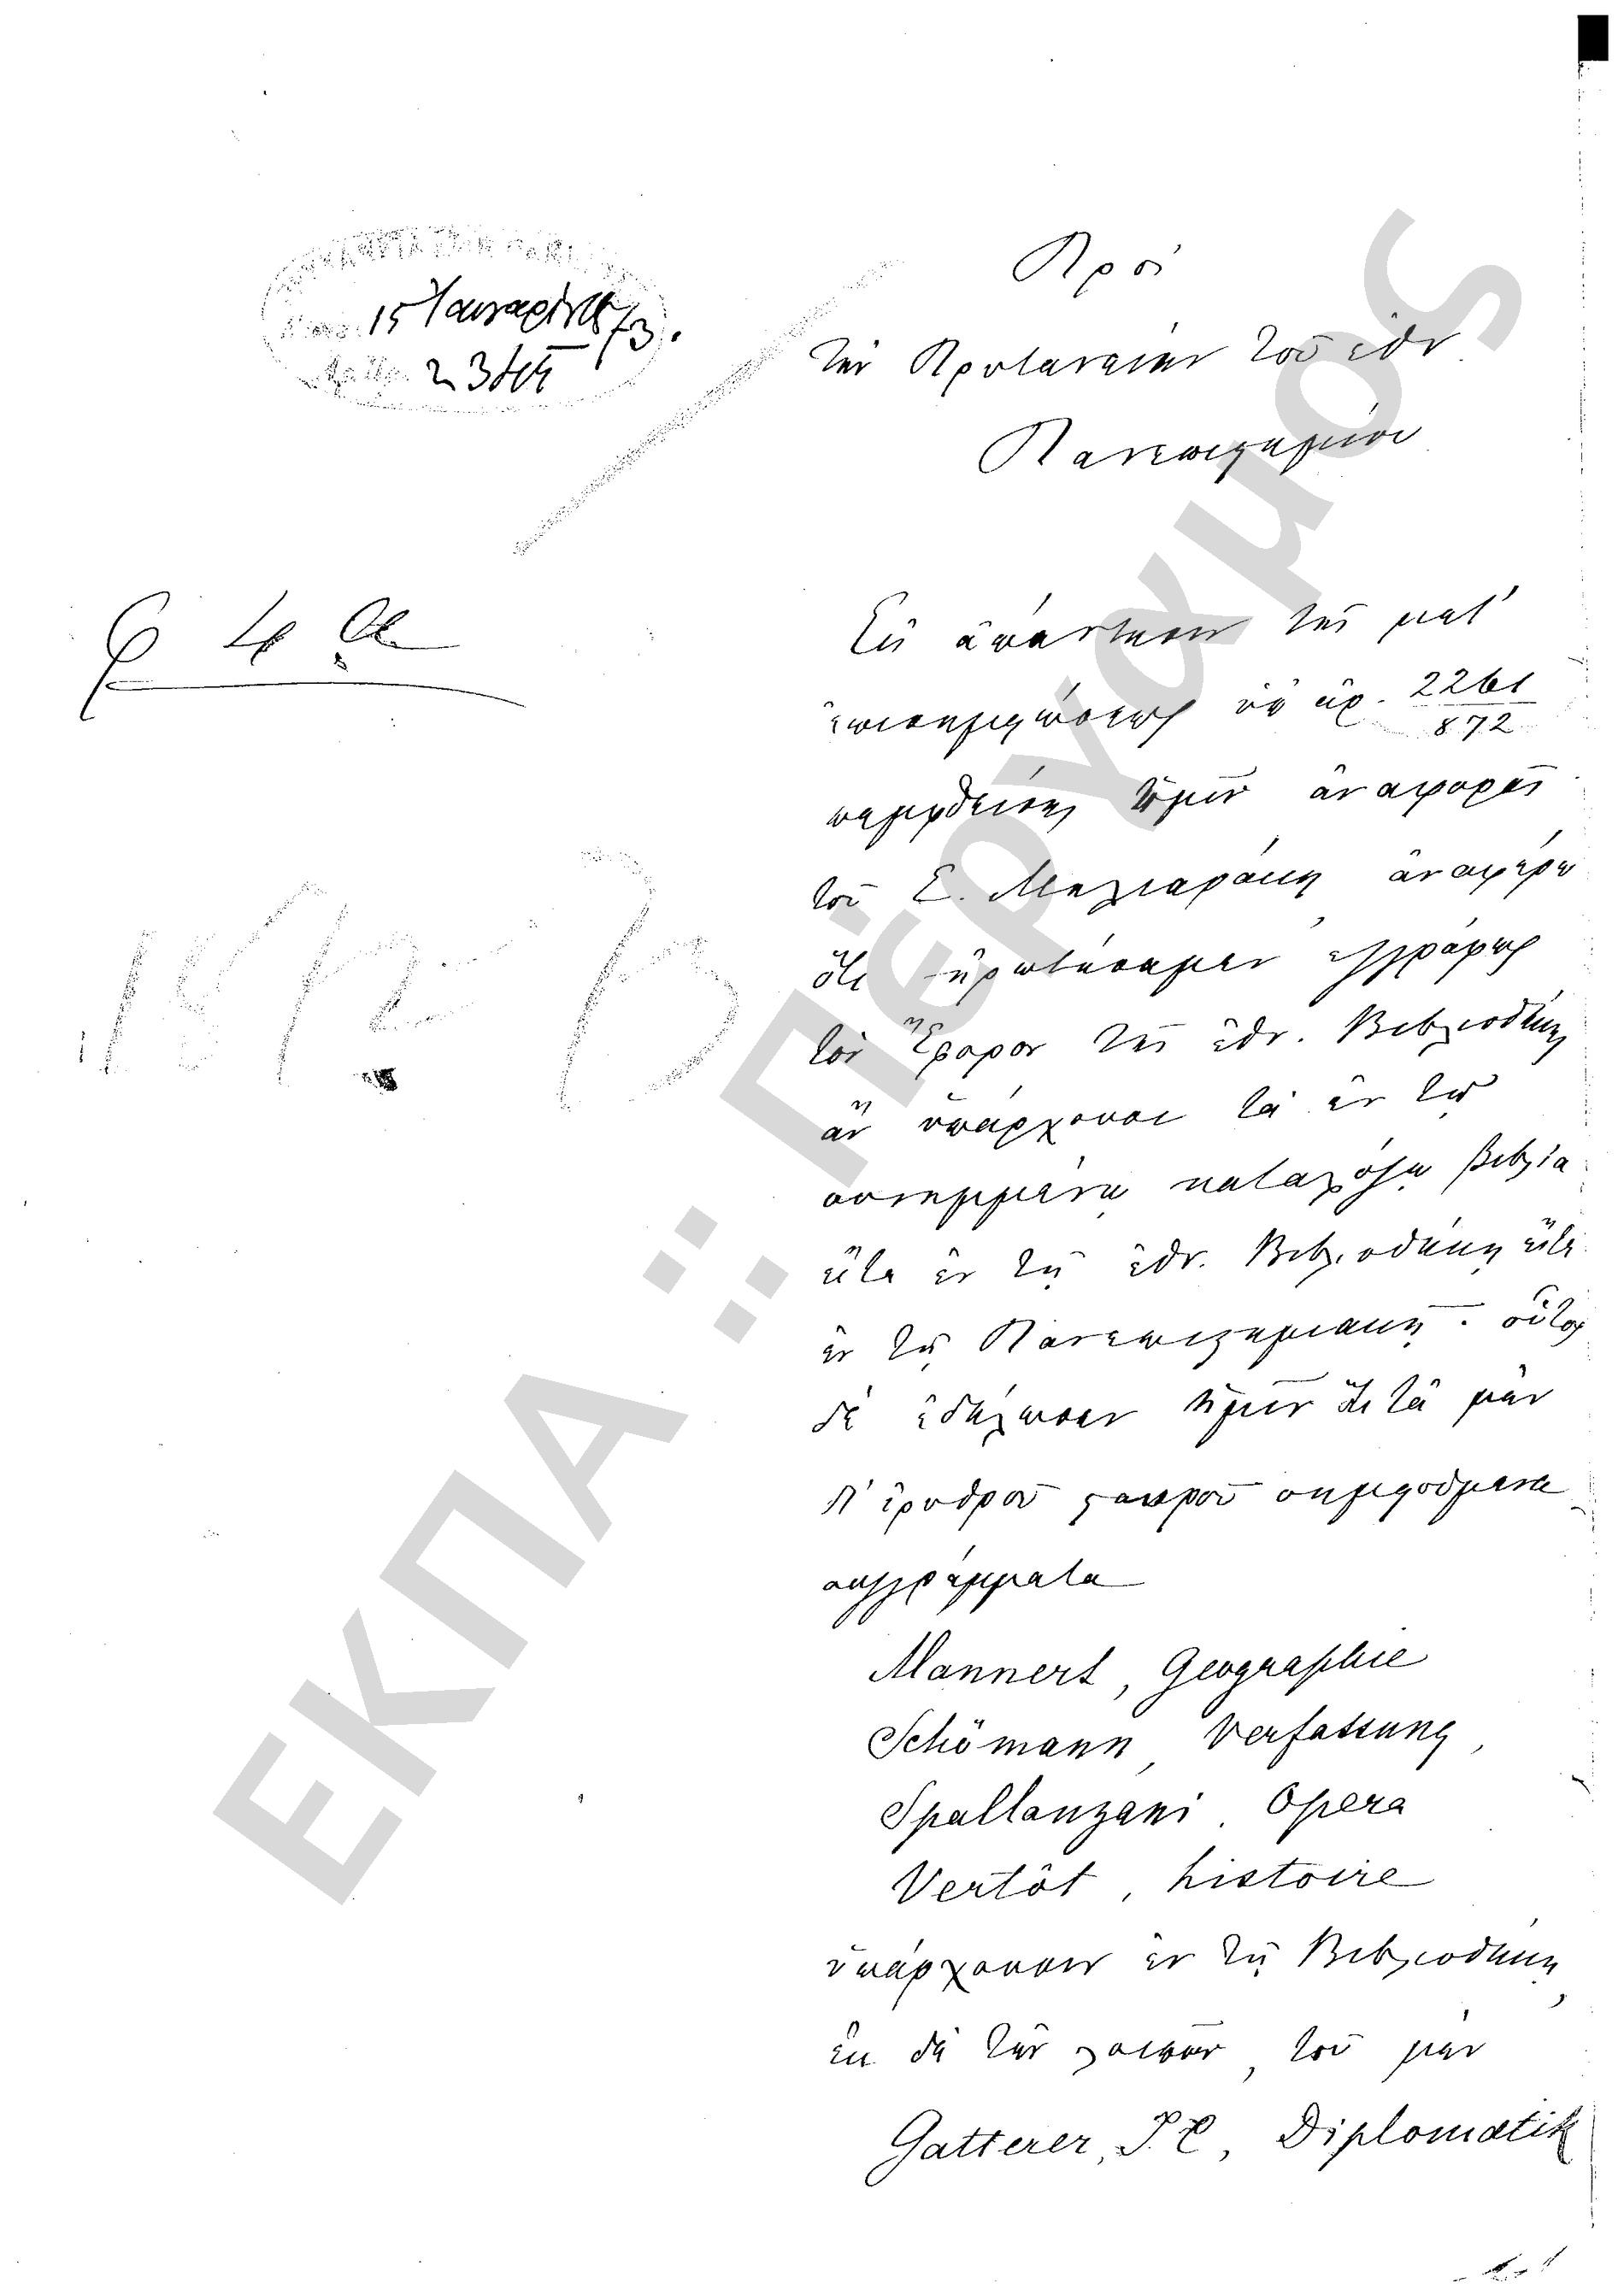 15 Ιανουαρίου 73.
Πρὸς
τὴν Πρυτανείαν τοῦ ἐθν.
Πανεπιστημίου
Εἰς ἀπάντησιν τῆς κατ'
ἐπισημείωσιν ὑπ' ἀρ. 2261
872
πεμφθείσης ἡμῖν ἀναφορᾶς
τοῦ Σ. Μηλιαράκη ἀναφέρω
ὅτι ἠρωτήσαμεν ἐγγράφως
τὸν Ἔφορον τῆς ἐθν. Βιβλιοθήκης
ἂν ὑπάρχουσι τὰ ἐν τῷ
συνημμένῳ καταλόγῳ βιβλία
εἴτε ἐν τῇ ἐθν. Βιβλιοθήκῃ εἴτε
ἐν τῇ Πανεπιστημιακῇ· οὗτος
δὲ ἐδήλωσεν ἡμῖν ὅτι τὰ μὲν
δι' ἐρυθροῦ σταυροῦ σημειούμενα
συγγράμματα
Mannert, Geographie
Schömann, Verfassung,
Spallanzani, Opera
Vertôt, histoire
ὑπάρχουσιν ἐν τῇ Βιβλιοθήκῃ,
ἐκ δὲ τῶν λοιπῶν, τοῦ μὲν
Gatterer, J. C, Diplomatik
ΕΚΠΑ :: Πέργαμος